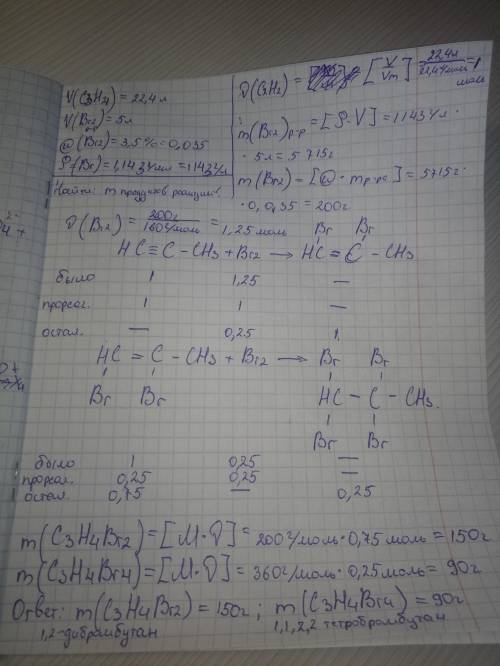 V(C3H4) = 22,4 л
V(Br2) р-р = 5 л
ω(Br2) = 3,5% = 0,035
= 1143 г/л
Найти: m продуктов реакции.
ν(C3H4) = [V/Vm] 22,4л / 22,4 л/моль = 1 моль
m(Br2) р-р = [ρ·V] = 1143 г/л ·
· 5л = 5715г
m(Br2) = [ω · mр-ра] = 5715г ·
· 0,035 = 200г
ν(Br2) = 200г / 160 г/моль = 1,25 моль
Br Br
HC ≡ C – CH3 + Br2 → HC = C – CH3
было 1 1,25 —
прореаг. 1 1 —
остал. — 0,25 1
HC = C – CH3 + Br2 → Br Br
Br Br HC – C – CH3.
Br Br
было 1 0,25 —
прореаг. 0,25 0,25 —
остал. 0,75 — 0,25
m(C3H4Br2) = [M·ν] = 200 г/моль · 0,75 моль = 150г
m(C3H4Br4) = [M·ν] = 360 г/моль · 0,25 моль = 90г
Ответ: m(C3H4Br2) = 150г; m(C3H4Br4) = 90г
1,2-дибромбутан 1,1,2,2 тетробромбутан